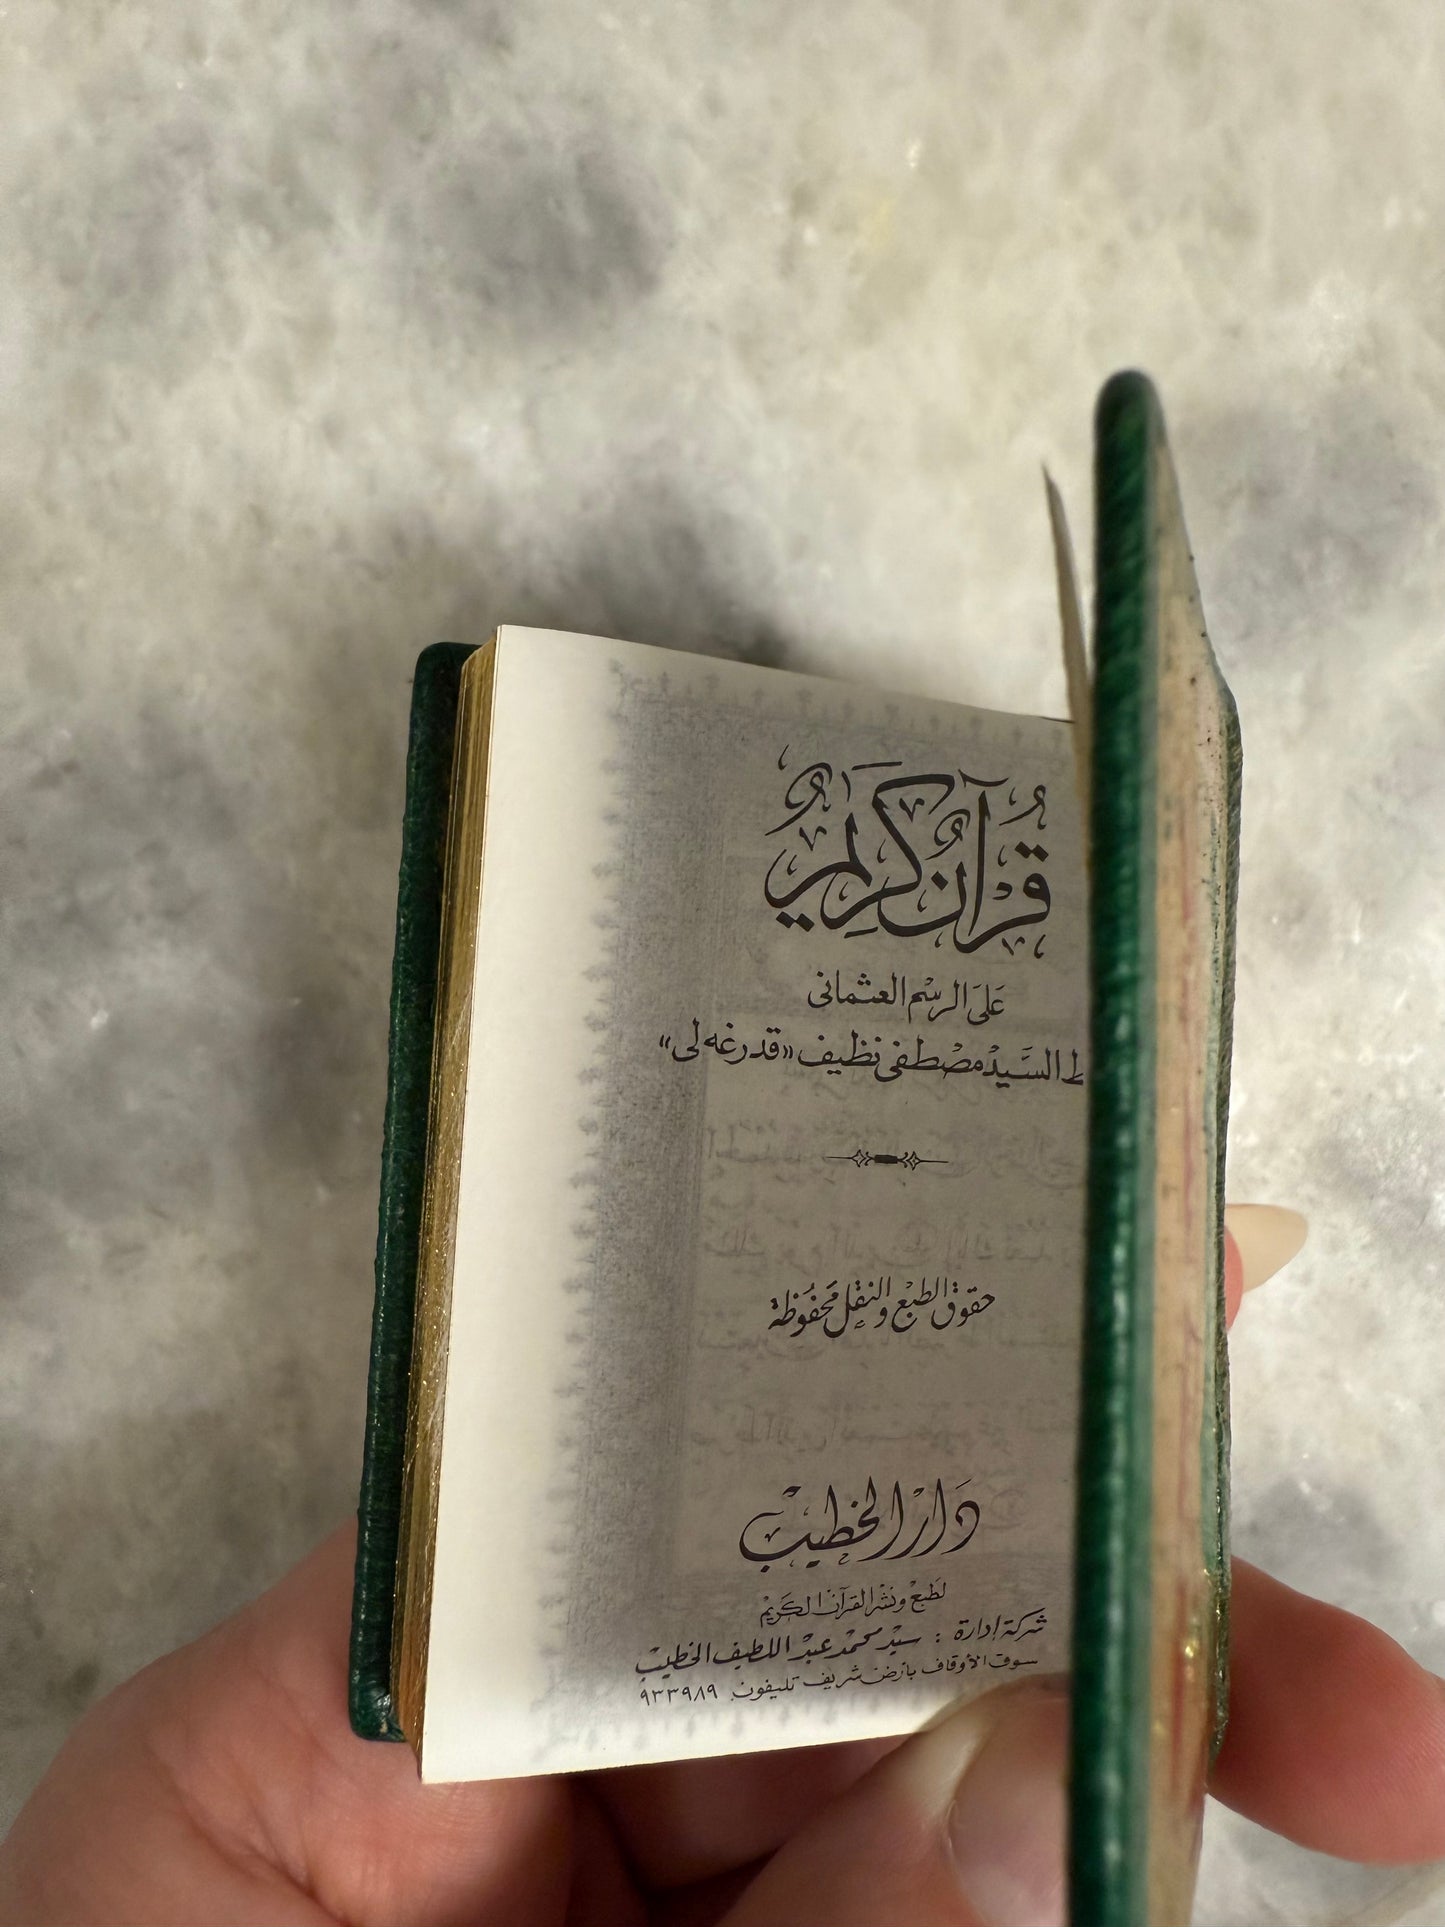 قُرْآنٌ كَرِيمٌ
عَلَى الرسْم العثمانى
ط السَّيدْ مصْطفى نظيف «قدرغه لى»
حقوق الطبْع والنقل محَفُوظة
دَارْ الخطيبْ
لطَبعْ ونشْر القرآن الكَريمْ
شركة إدارة : سيدْ محمدْ عبدْ اللطيف الخطيبْ
سوق الأوقاف بأرض شريف تليفون ٩٣٣٩٨٩